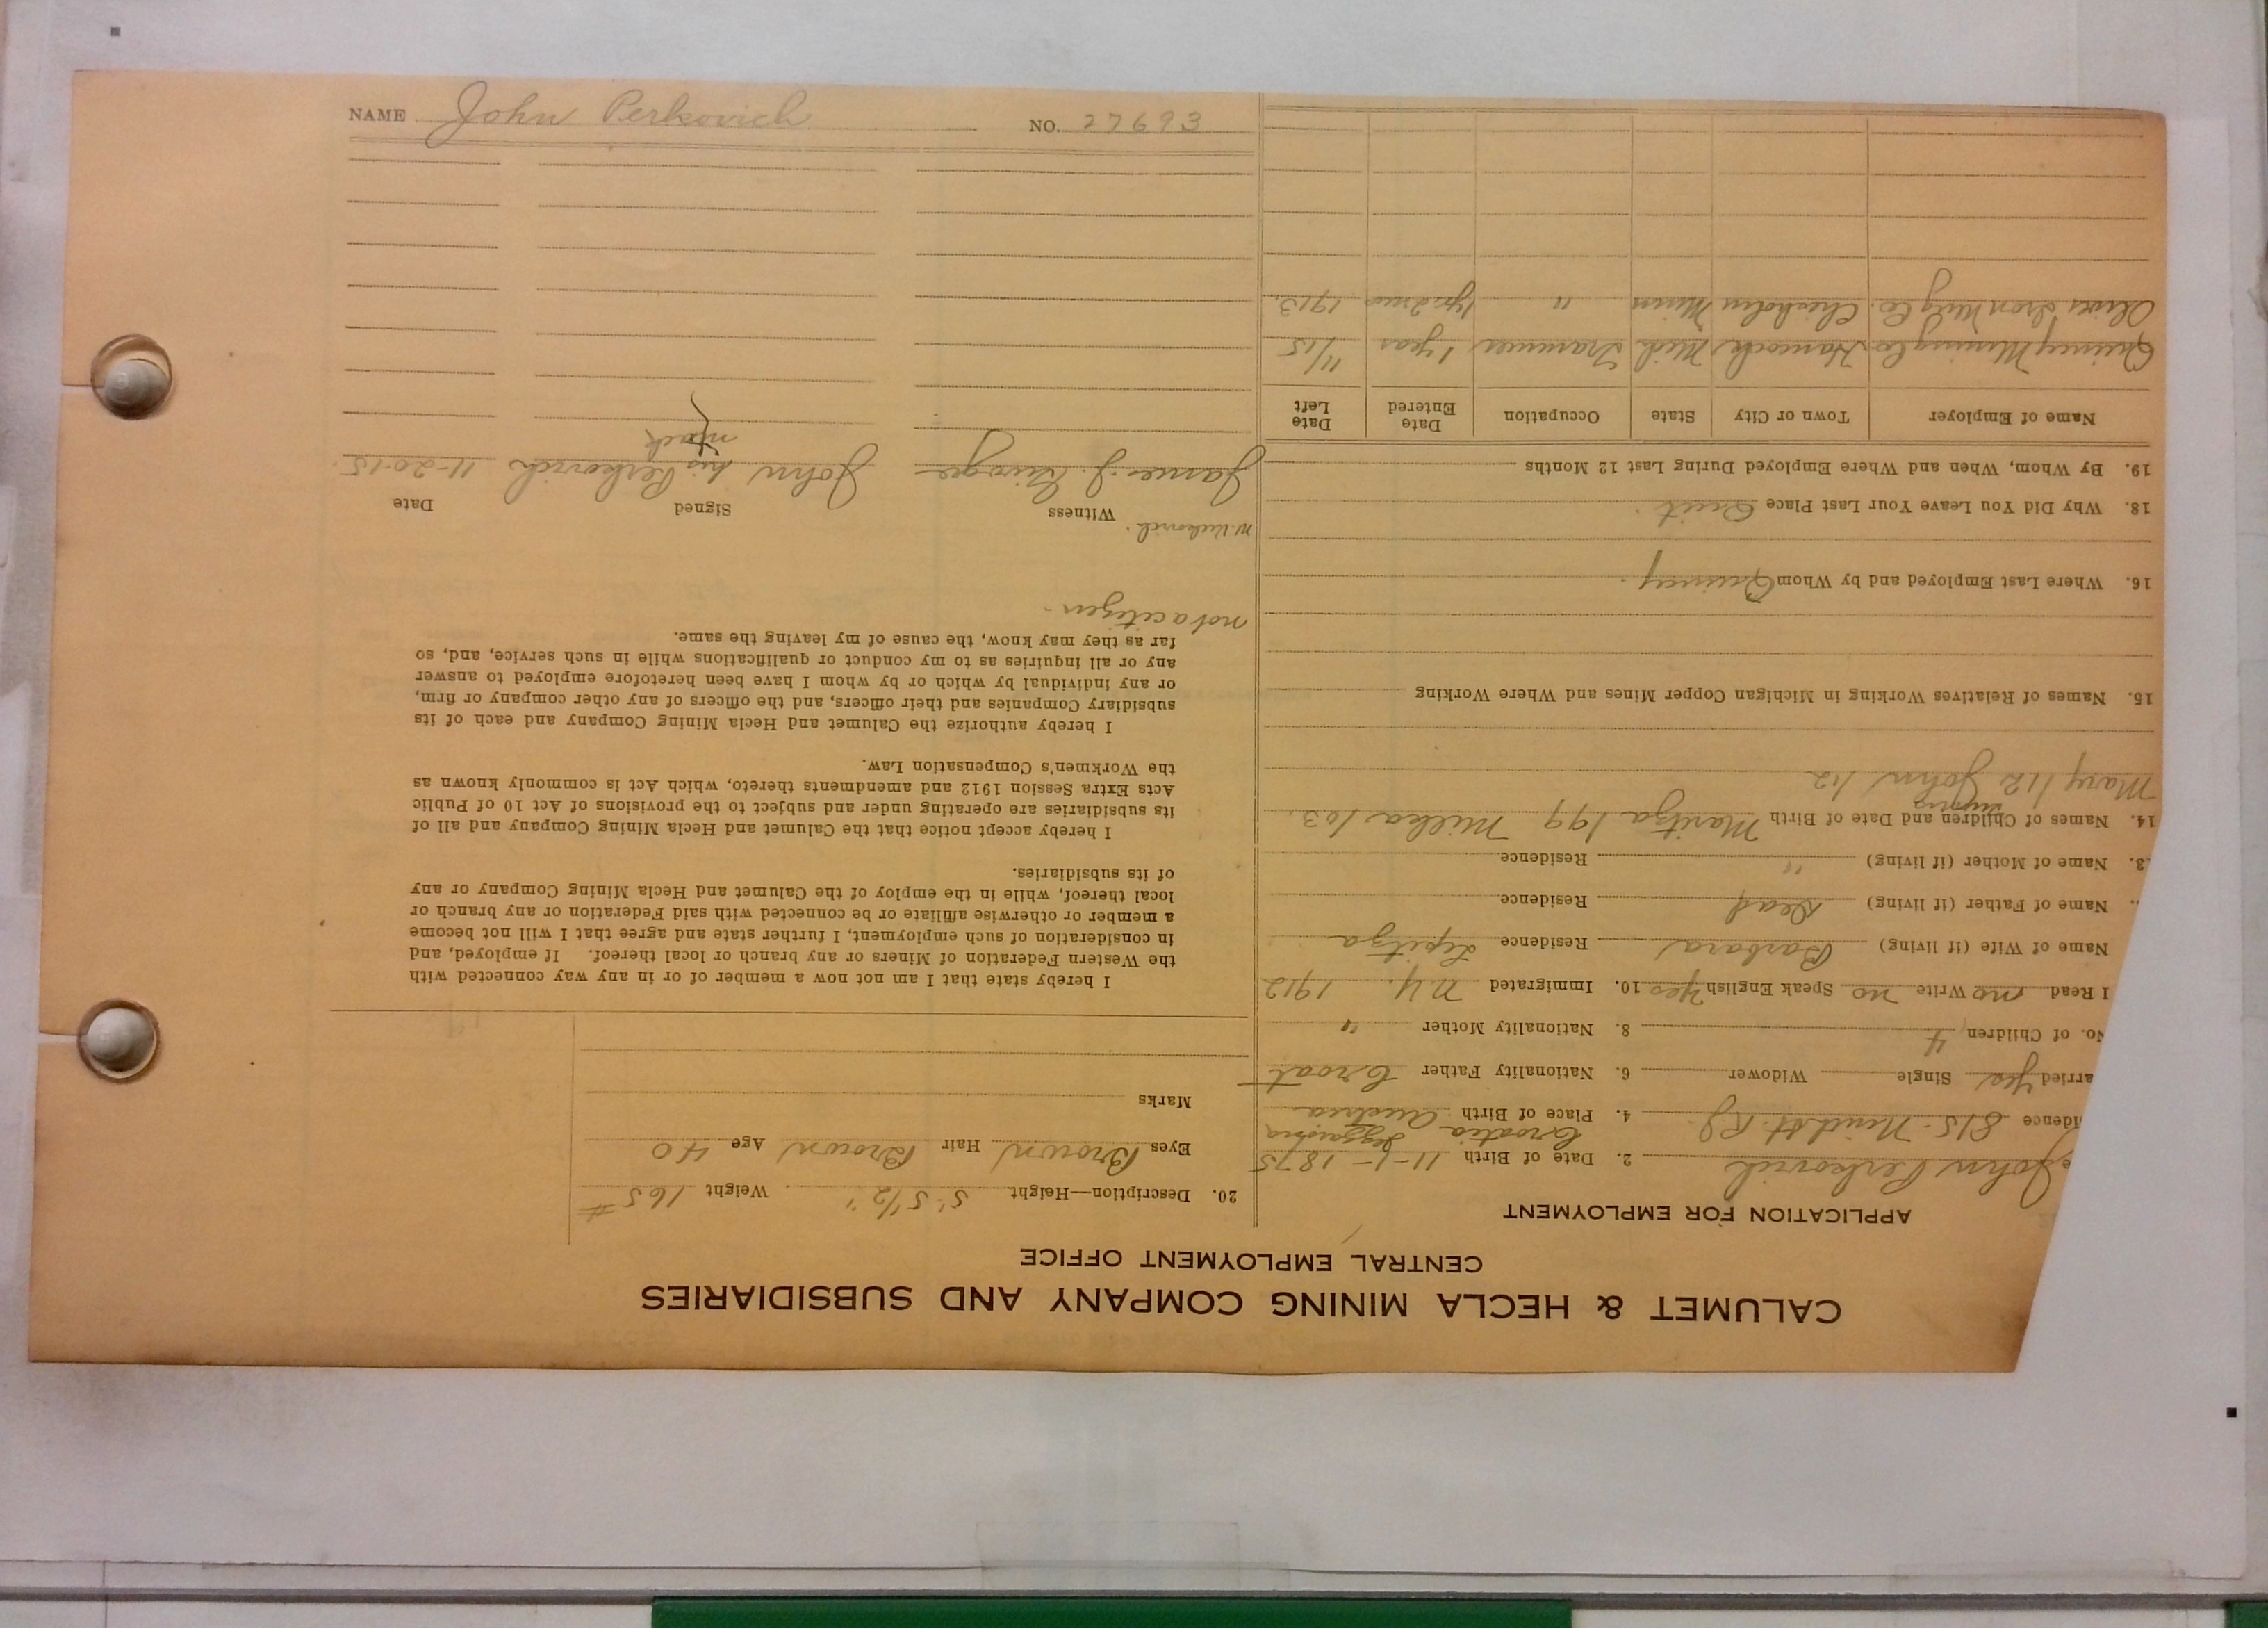 CALUMET & HECLA MINING COMPANY AND SUBSIDIARIES
CENTRAL EMPLOYMENT OFFICE
APPLICATION FOR EMPLOYMENT
e John Perkovich 2. Date of Birth 11-1-1875
Croatia
idence 815- Nind st. RJ 4. Place of Birth Austria
arried Yes Single Widower 6. Nationality Father Croat
No. of Children 4 8. Nationality Mother "
I Read no Write no Speak English Yes 10. Immigrated N.Y. 1912
Name of Wife (if living) Barbara Residence
Name of Father (if living) Dead Residence
3. Name of Mother (if living) " Residence
14. Names of Children and Date of Birth Maritza 199 Milka 103.
Mary 112 John 112
15. Names of Relatives Working in Michigan Copper Mines and Where Working
16. Where Last Employed and by Whom Quincy.
18. Why Did You Leave Your Last Place Quit.
19. By Whom, When and Where Employed During Last 12 Months
Name of Employer Town or City State Occupation Date Entered Date Left
Quincy Mining Co. Hancock Mich Trammer 1 year 11/15
Oliver Iron Mng Co. Chisholm Minn " 1913.
20. Description—Height 5' 5 1/2" Weight 165 #
Eyes Brown Hair Brown Age 40
Marks
I hereby state that I am not now a member of or in any way connected with
the Western Federation of Miners or any branch or local thereof. If employed, and
in consideration of such employment, I further state and agree that I will not become
a member or otherwise affiliate or be connected with said Federation or any branch or
local thereof, while in the employ of the Calumet and Hecla Mining Company or any
of its subsidiaries.
I hereby accept notice that the Calumet and Hecla Mining Company and all of
its subsidiaries are operating under and subject to the provisions of Act 10 of Public
Acts Extra Session 1912 and amendments thereto, which Act is commonly known as
the Workmen's Compensation Law.
I hereby authorize the Calumet and Hecla Mining Company and each of its
subsidiary Companies and their officers, and the officers of any other company or firm,
or any individual by which or by whom I have been heretofore employed to answer
any or all inquiries as to my conduct or qualifications while in such service, and, so
far as they may know, the cause of my leaving the same.
not a citizen.
Witness Signed Date
James J. John his Perkovich 11-20-15.
mark
NAME John Perkovich NO. 27693